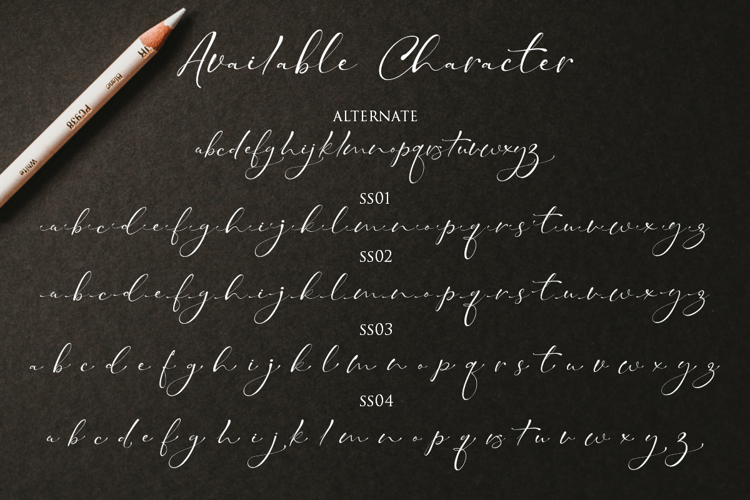 Available Character
ALTERNATE
abcdefghijklmnopqrstuvwxyz
SS01
a b c d e f g h i j k l m n o p q r s t u v w x y z
SS02
a b c d e f g h i j k l m n o p q r s t u v w x y z
SS03
a b c d e f g h i j k l m n o p q r s t u v w x y z
SS04
a b c d e f g h i j k l m n o p q r s t u v w x y z
PC938
White